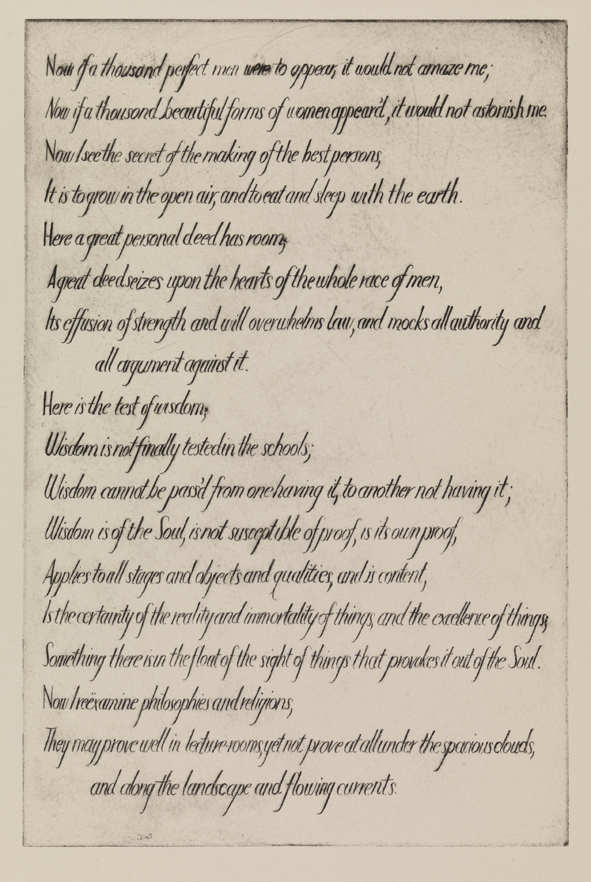 Now if a thousand perfect men were to appear, it would not amaze me;
Now if a thousand beautiful forms of women appear'd, it would not astonish me.
Now I see the secret of the making of the best persons,
It is to grow in the open air, and to eat and sleep with the earth.
Here a great personal deed has room;
A great deed seizes upon the hearts of the whole race of men,
Its effusion of strength and will overwhelms law, and mocks all authority and
all argument against it.
Here is the test of wisdom;
Wisdom is not finally tested in the schools;
Wisdom cannot be pass'd from one having it, to another not having it;
Wisdom is of the Soul, is not susceptible of proof, is its own proof,
Applies to all stages and objects and qualities, and is content,
Is the certainty of the reality and immortality of things, and the excellence of things;
Something there is in the float of the sight of things that provokes it out of the Soul.
Now I reëxamine philosophies and religions,
They may prove well in lecture-rooms, yet not prove at all under the spacious clouds,
and along the landscape and flowing currents.